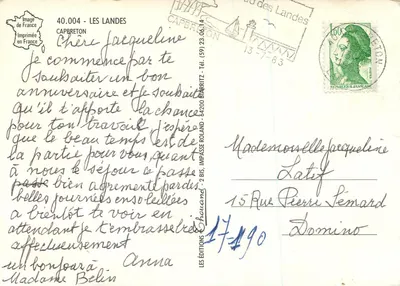 Image
de France
Imprimée
en France
40.004 - LES LANDES
CAPBRETON
Chère Jacqueline
je commence par te
souhaiter un bon
anniversaire et je souhaite
qu'il t'apporte la chance
pour ton travail j'espère
que le beau temps est de
la partie pour vous, quant
à nous le séjour se passe
passe bien agrémenté par des
belles journées ensoleillées
a bientôt te voir en
attendant je t'embrasse très
affectueusement
Anna
un bonjour à
Madame Belin
LES ÉDITIONS - 2 BIS, IMPASSE ROLAND - 64200 BIARRITZ - TÉL. (59) 23.06.14
des Landes
CAPBRETON
1,00
Mademoiselle Jacqueline
Latif
15 Rue Pierre Sémard
Domino
17-190